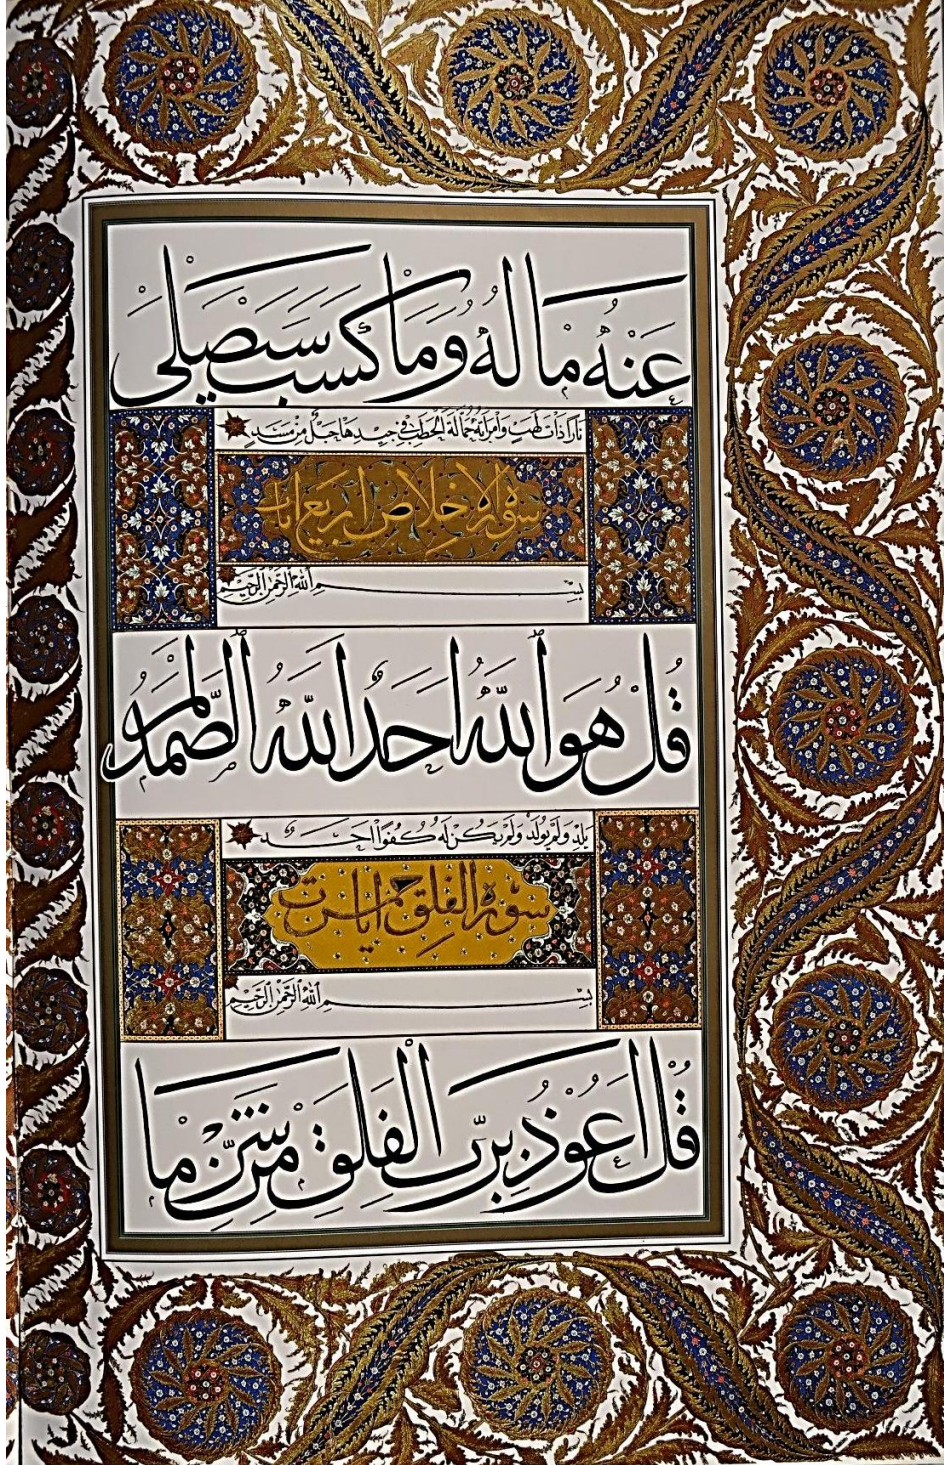 عَنْهُ مَالُهُ وَمَا كَسَبَ سَيَصْلَى
نَارًا ذَاتَ لَهَبٍ وَامْرَأَتُهُ حَمَّالَةَ الْحَطَبِ فِي جِيدِهَا حَبْلٌ مِنْ مَسَدٍ
سورة الإخلاص اربع ايات
بِسْمِ اللَّهِ الرَّحْمَنِ الرَّحِيمِ
قُلْ هُوَ اللَّهُ أَحَدٌ اللَّهُ الصَّمَدُ لَمْ
يَلِدْ وَلَمْ يُولَدْ وَلَمْ يَكُنْ لَهُ كُفُوًا أَحَدٌ
سورة الفلق خمس ايات
بِسْمِ اللَّهِ الرَّحْمَنِ الرَّحِيمِ
قُلْ أَعُوذُ بِرَبِّ الْفَلَقِ مِنْ شَرِّ مَا